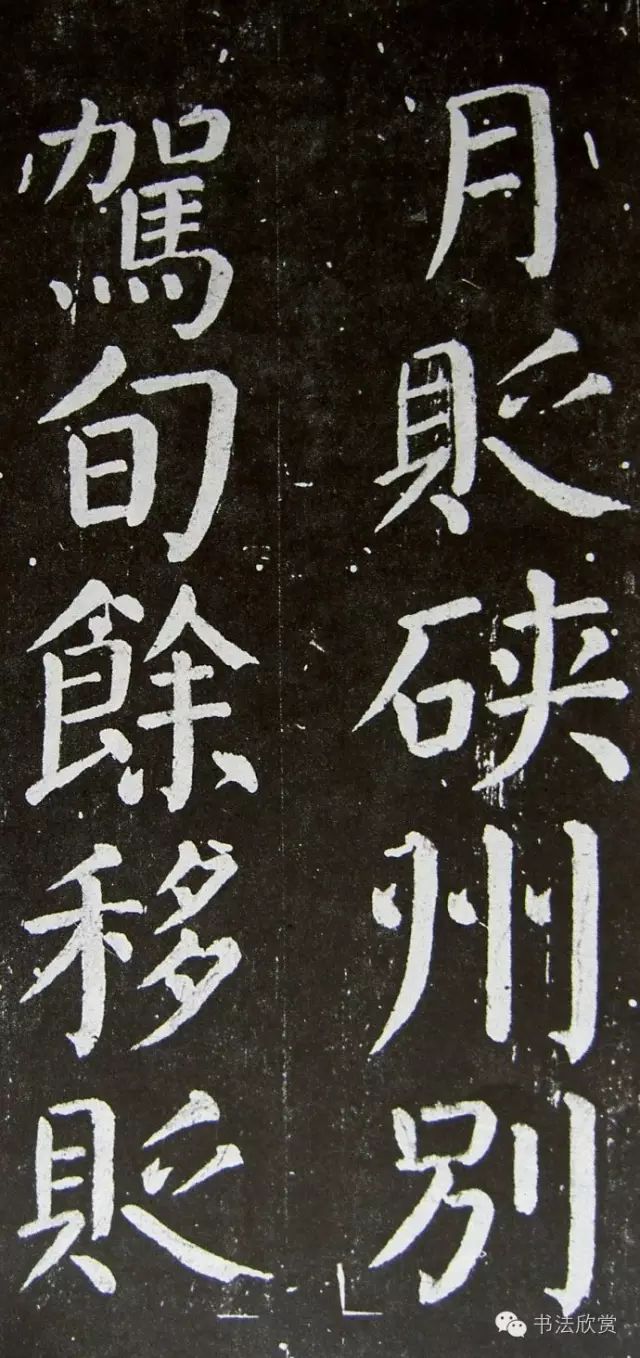 月貶硤州別
駕旬餘移貶
书法欣赏